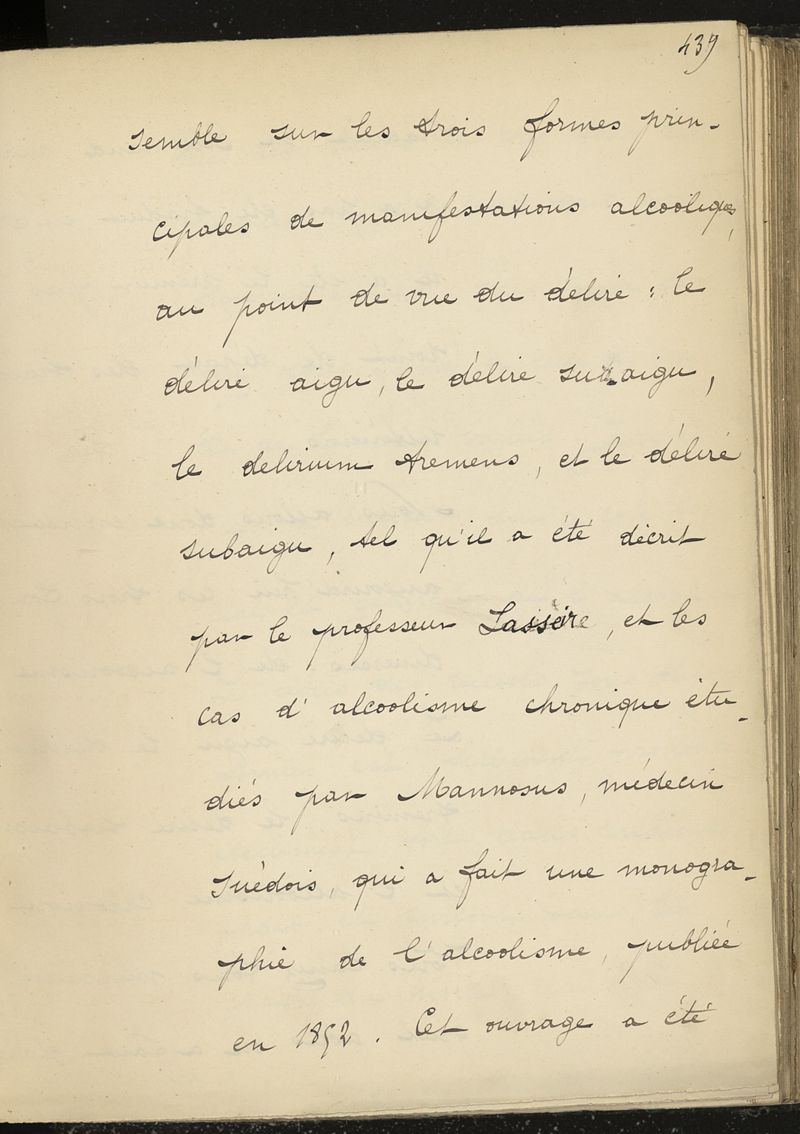 439
semble sur les trois formes prin-
cipales de manifestations alcooliques,
au point de vue du délire : le
délire aigu, le délire suraigu,
le delirium tremens, et le délire
subaigu, tel qu'il a été décrit
par le professeur , et les
cas d'alcoolisme chronique étu-
diés par Mannosus, médecin
suédois, qui a fait une monogra-
phie de l'alcoolisme, publiée
en 1852. Cet ouvrage a été